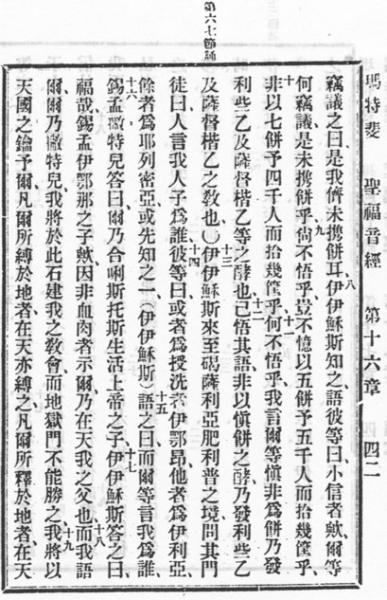 瑪特斐 聖福音經 第十六章 四二
竊議之曰是我儕未攜餅耳八伊伊穌斯知之語彼等曰小信者歟爾等
何竊議是未攜餅乎九尙不悟乎豈不憶以五餅予五千人而拾幾筐乎
十非以七餅予四千人而拾幾筐乎十一何不悟乎我言爾等愼非爲餅乃發
利些乙及薩督楷乙等之酵也十二已悟其語非以愼餅之酵乃發利些乙
及薩督楷乙之敎也○十三伊伊穌斯來至碣薩利亞肥利普之境問其門
徒曰人言我人子爲誰十四彼等曰或者爲授洗者伊鄂昂他者爲伊利亞
餘者爲耶列密亞或先知之一十五(伊伊穌斯)語之曰而爾等言我爲誰
十六錫孟撇特兒答曰爾乃合唎斯托斯生活上帝之子十七伊伊穌斯答之曰
福哉錫孟伊鄂那之子歟因非血肉者示爾乃在天我之父也十八而我語
爾爾乃撇特兒我將於此石建我之敎會而地獄門不能勝之十九我將以
天國之鑰予爾凡爾所縛於地者在天亦縛之凡爾所釋於地者在天